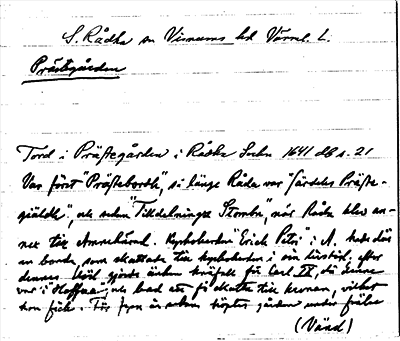 S. Råda sn Visnums hd Värml. L.
Prästgården
Tord i Prästegården i Råda Sochn 1641 db s. 21
Var först "Prästebordh", så länge Råda var "särdeles Präste-
giäldh", och sedan "Tilldelningz Stombn", när Råda blev an-
nex till Amnehärad. Kyrkoherden "Erich Petri" i A. hade där
en bonde, som skattade till kyrkoherden i sin livstid, efter
dennes död gjorde änkan knäfall för Carl IX, då denne
var i Hoffva, och bad att få skatta till kronan, vilket
hon fick. För Jegn årsaken köptes gården under frälse
(Vänd)